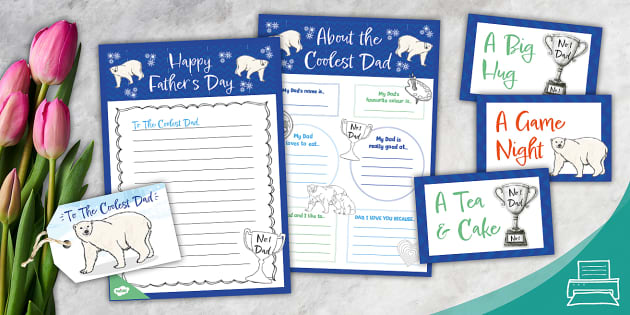 Happy
Father's Day
To The Coolest Dad,
No1
Dad
To The Coolest Dad
About the
Coolest Dad
My Dad's name is...
My Dad's
favourite colour is...
My Dad
loves to eat...
No1
Dad
My Dad is
really good at...
Dad and I like to...
DAD I LOVE YOU BECAUSE...
A Big
Hug
No1
Dad
A Game
Night
A Tea
& Cake
No1
Dad
No1